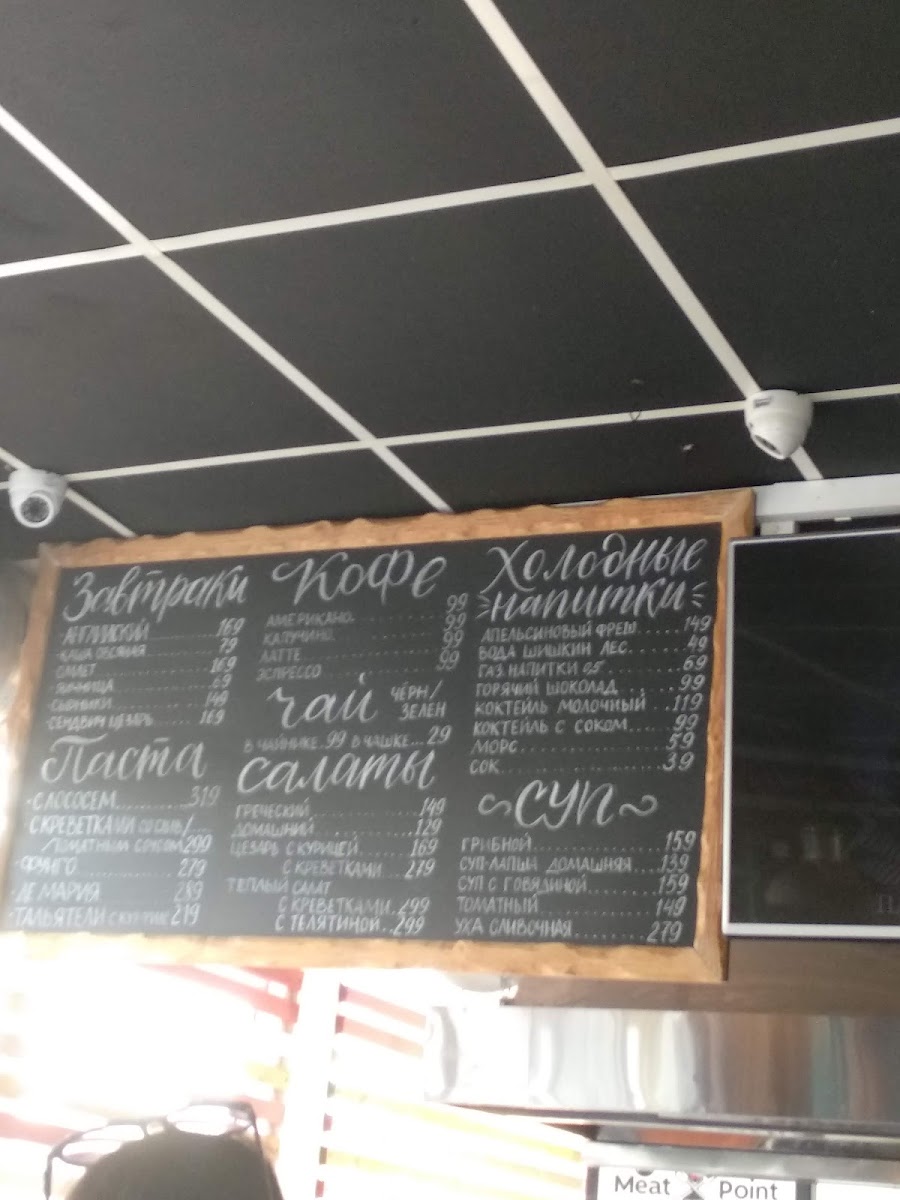 Завтраки
АНГЛИЙСКИЙ 169
КАША ОВСЯНАЯ 79
ОМЛЕТ 169
ЯИЧНИЦА 69
СЫРНИКИ 149
СЕНДВИЧ ЦЕЗАРЬ 169
Паста
С ЛОСОСЕМ 319
С КРЕВЕТКАМИ
ТОМАТНЫМ СОКОМ 299
ФУНГО 279
ДЕ МАРИЯ 289
ТАЛЬЯТЕЛИ С КУРИЦЕЙ 219
Кофе
АМЕРИКАНО 99
КАПУЧИНО 99
ЛАТТЕ 99
ЭСПРЕССО 99
Чай ЧЁРН/
ЗЕЛЕН
В ЧАЙНИКЕ 99 В ЧАШКЕ 29
Салаты
ГРЕЧЕСКИЙ 149
ДОМАШНИЙ 129
ЦЕЗАРЬ С КУРИЦЕЙ 169
С КРЕВЕТКАМИ 279
ТЕПЛЫЙ САЛАТ
С КРЕВЕТКАМИ 299
С ТЕЛЯТИНОЙ 299
Холодные
напитки
АПЕЛЬСИНОВЫЙ ФРЕШ 149
ВОДА ШИШКИН ЛЕС 49
ГАЗ. НАПИТКИ 0.5 69
ГОРЯЧИЙ ШОКОЛАД 99
КОКТЕЙЛЬ МОЛОЧНЫЙ 119
КОКТЕЙЛЬ С СОКОМ 99
МОРС 59
СОК 39
СУП
ГРИБНОЙ 159
СУП-ЛАПША ДОМАШНЯЯ 139
СУП С ГОВЯДИНОЙ 159
ТОМАТНЫЙ 149
УХА СЛИВОЧНАЯ 279
Meat Point